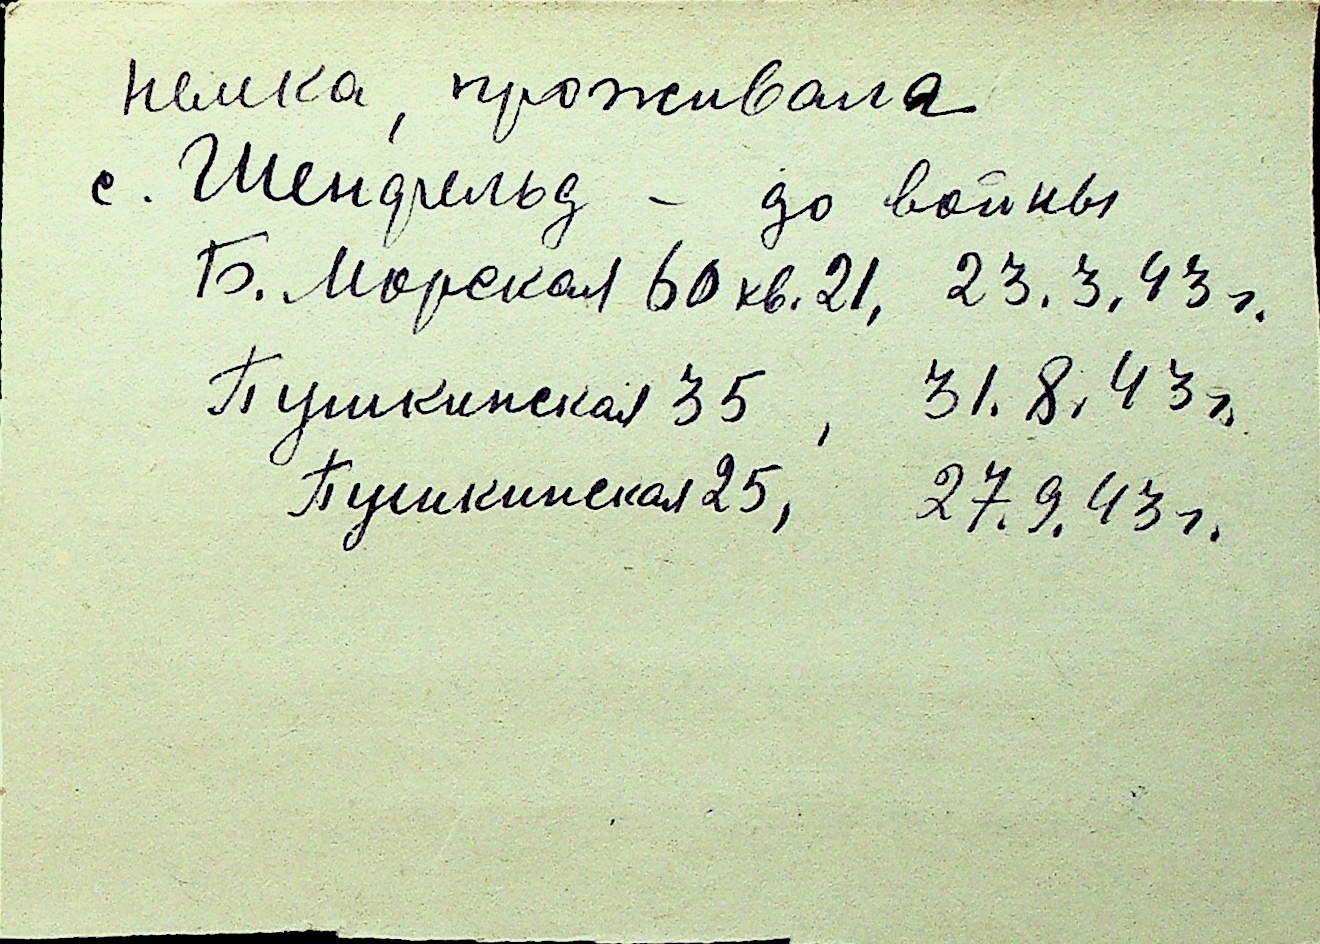 немка, проживала
с. Шенфельд - до войны
Б. Морская 60 кв. 21, 23.3.43 г.
Пушкинская 35, 31.8.43 г.
Пушкинская 25, 27.9.43 г.